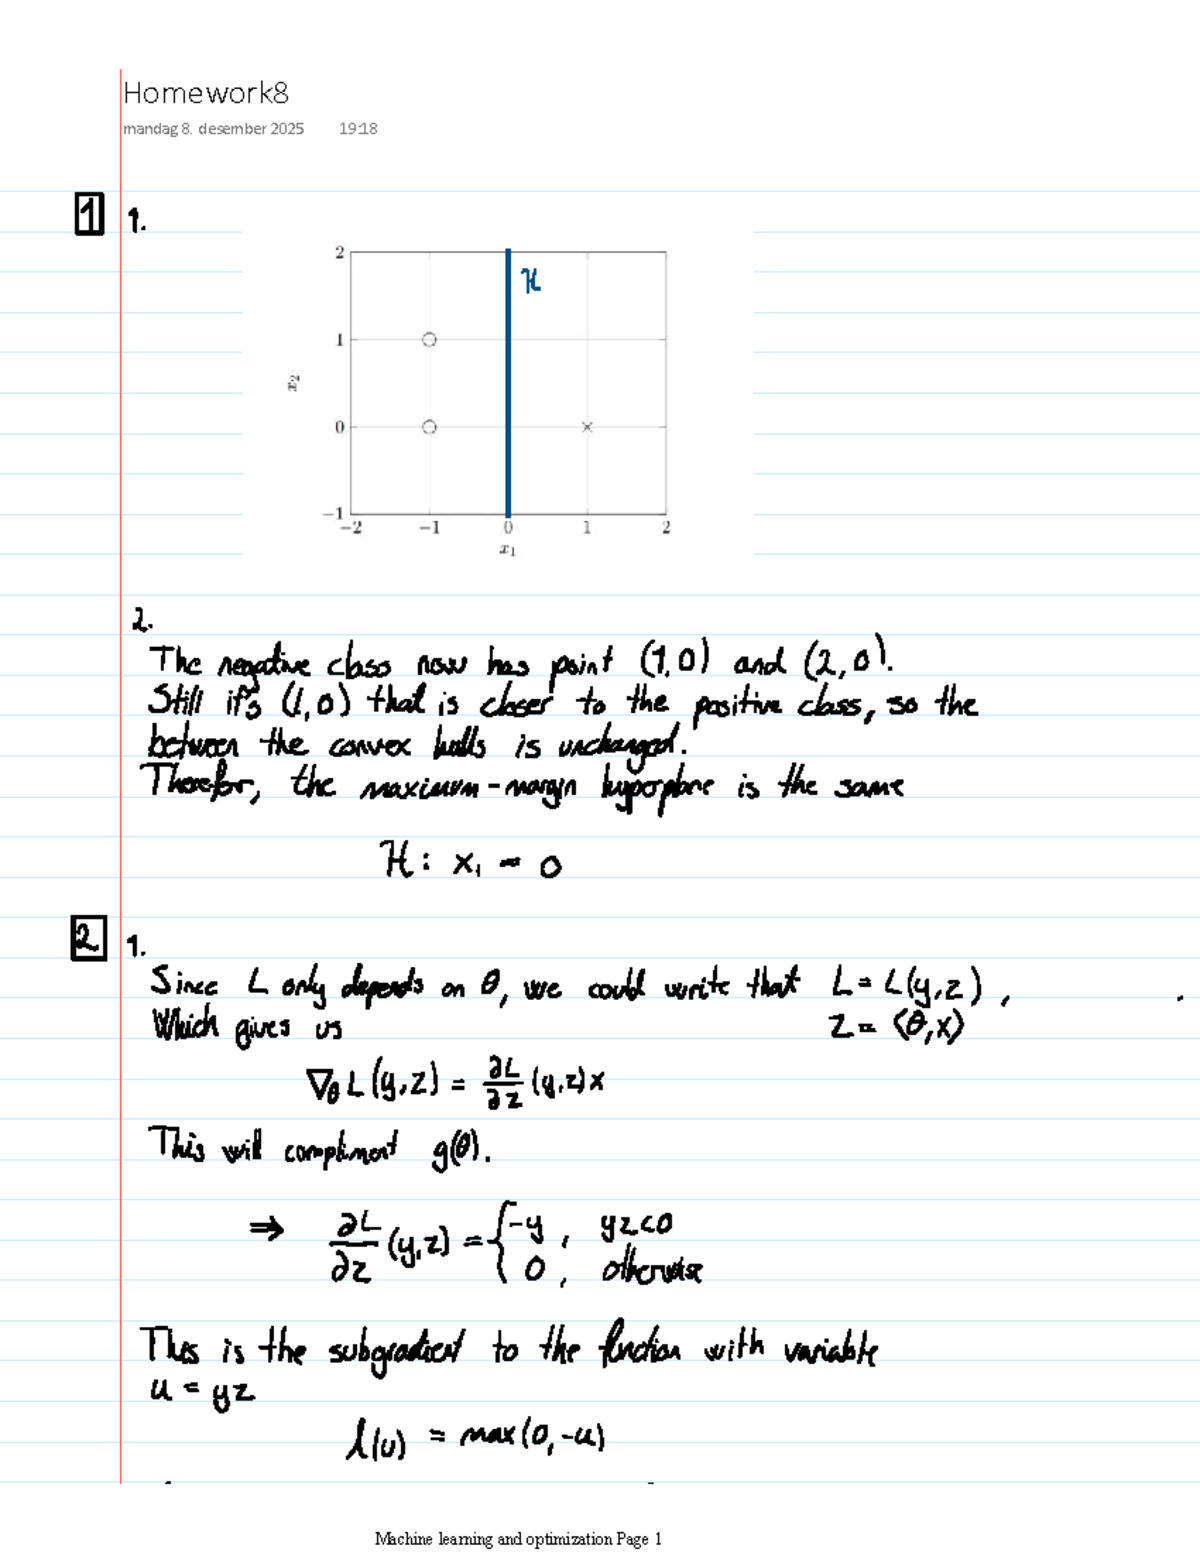 Homework8
mandag 8. desember 2025 19:18
1 1.
2
H
1
x2
0
-1
-2 -1 0 1 2
x1
2.
The negative class now has point (1,0) and (2,0).
Still it's (1,0) that is closer to the positive class, so the
between the convex hulls is unchanged.
Therefor, the maximum-margin hyperplane is the same
H: x₁ = 0
2 1.
Since L only depends on θ, we could write that L = L(y,z) ,
Which gives us z = ⟨θ,x⟩
∇θ L(y,z) = ∂L/∂z (y,z)x
This will compliment g(θ).
⇒ ∂L/∂z (y,z) = { -y , yz<0
0 , otherwise
This is the subgradient to the function with variable
u = yz
l(u) = max(0,-u)
Machine learning and optimization Page 1